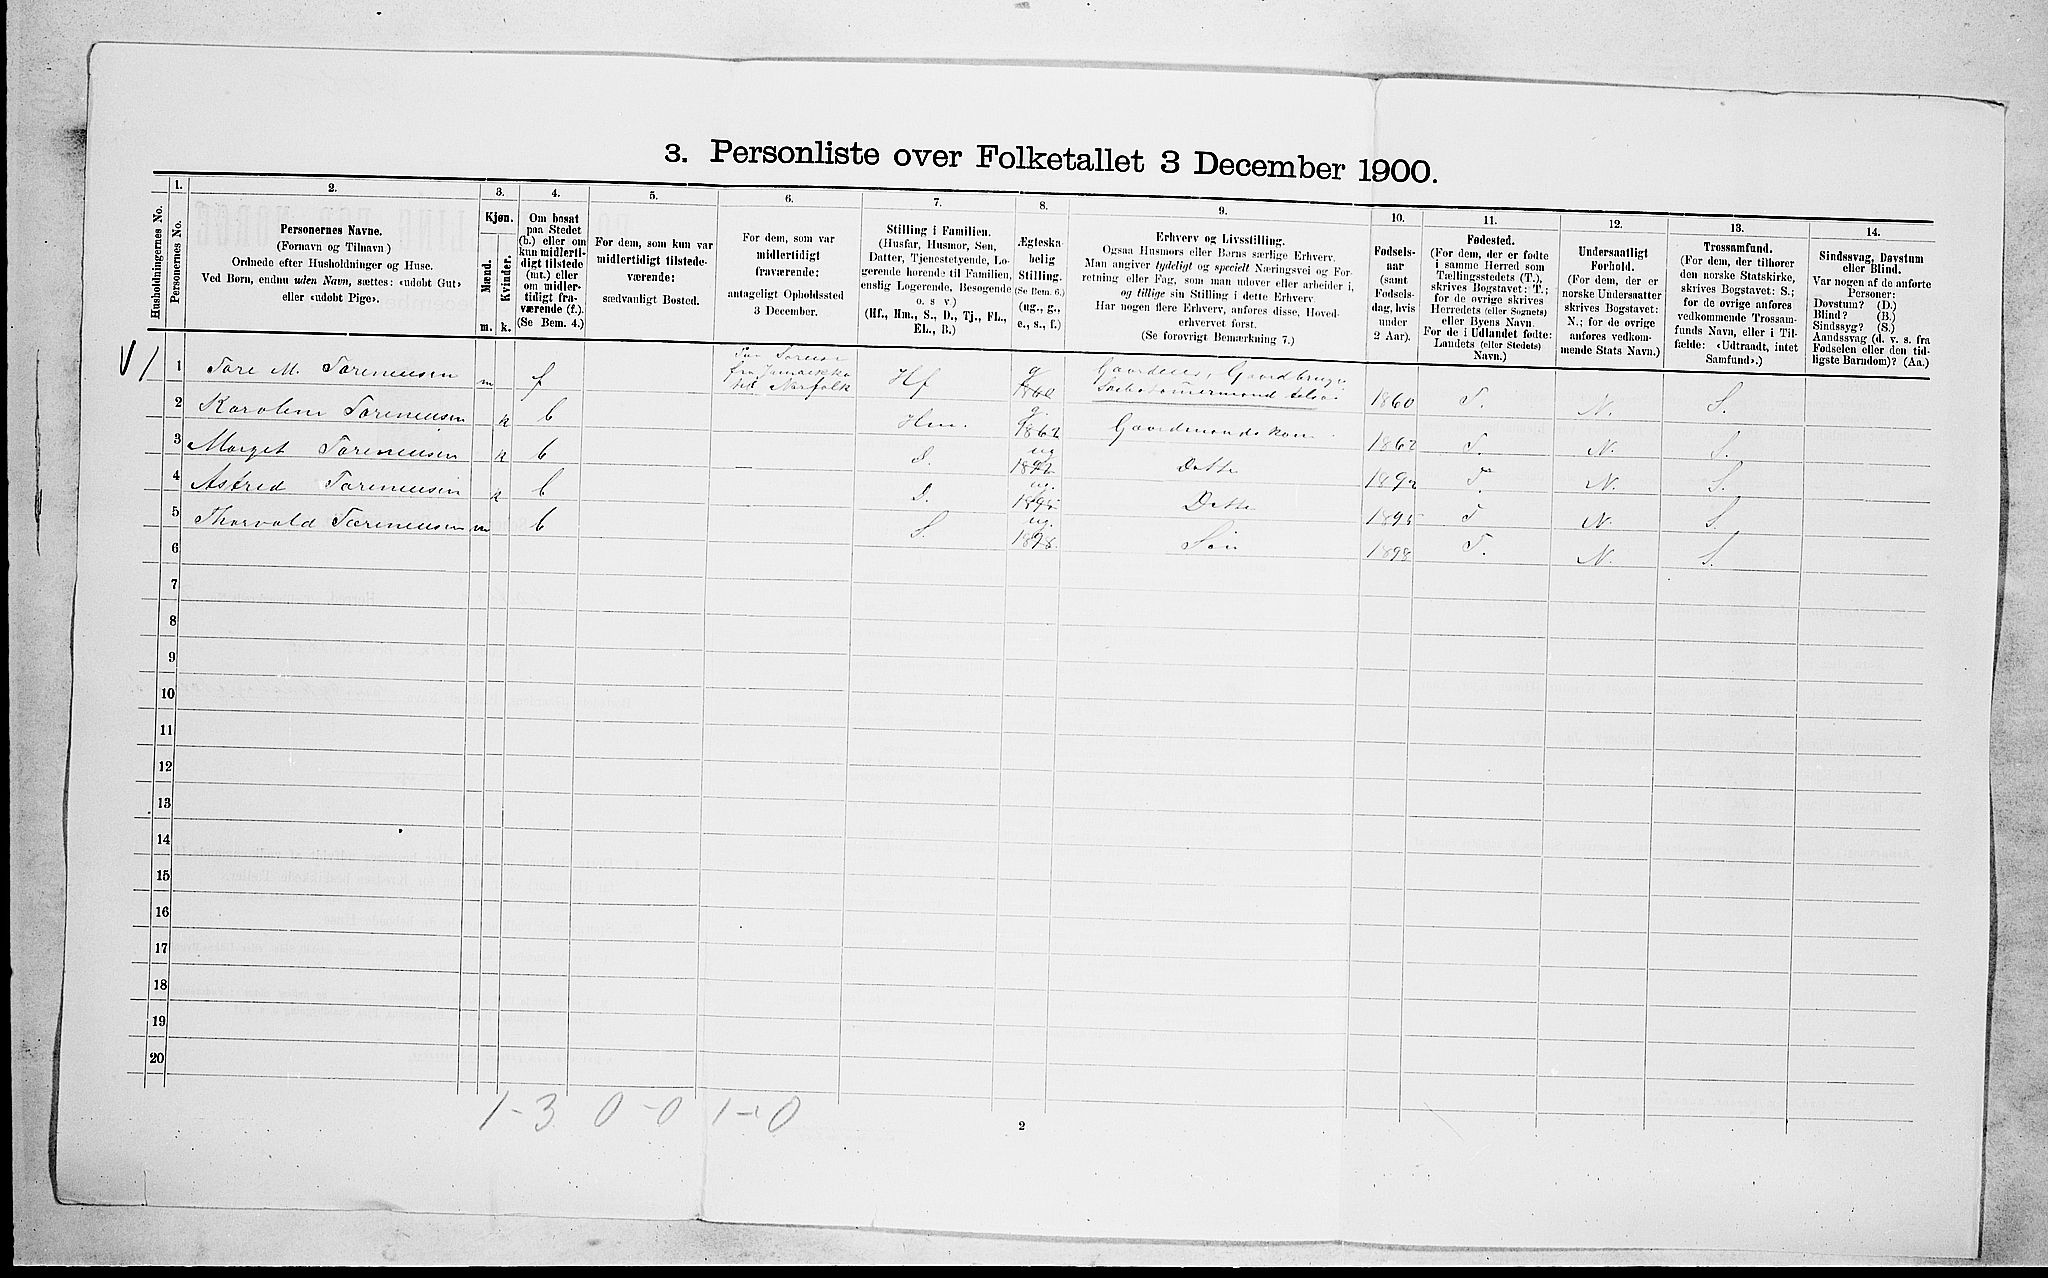 3. Personliste over Folketallet 3 December 1900.
Husholdningernes No.
1.
Personernes No.
2.
Personernes Navne.
(Fornavn og Tilnavn.)
Ordnede efter Husholdninger og Huse.
Ved Børn, endnu uden Navn, sættes: «udøbt Gut»
eller «udøbt Pige».
3.
Kjøn.
Mænd.
Kvinder.
m.
k.
4.
Om bosat
paa Stedet
(b.) eller om
kun midlerti-
digt tilstede
(mt.) eller
om midler-
tidigt fra-
værende (f.).
(Se Bem. 4.)
5.
For dem, som kun var
midlertidigt tilstede-
værende:
sædvanligt Bosted.
6.
For dem, som var
midlertidigt
fraværende:
antageligt Opholdssted
3 December.
7.
Stilling i Familien.
(Husfar, Husmor, Søn,
Datter, Tjenestetyende, Lo-
gerende hørende til Familien,
enslig Logerende, Besøgende
o. s v.)
(Hf., Hm., S., D., Tj., FL.,
EL., B.)
8.
Ægteska-
belig
Stilling.
(Se Bem. 6.)
(ug., g.,
e., s., f.)
9.
Erhverv og Livsstilling.
Ogsaa Husmors eller Børns særlige Erhverv.
Man angiver tydeligt og specielt Næringsvei og For-
retning eller Fag, som man udøver eller arbeider i,
og tillige sin Stilling i dette Erhverv.
Har nogen flere Erhverv, anføres disse, Hoved-
erhvervet først.
(Se forøvrigt Bemærkning 7.)
10.
Fødsels-
aar
(samt
Fødsels-
dag, hvis
under
2 Aar).
11.
Fødested.
(For dem, der er fødte
i samme Herred som
Tællingsstedets (T.),
skrives Bogstavet: T.;
for de øvrige skrives
Herredets (eller Sognets)
eller Byens Navn.
For de i Udlandet fødte:
Landets (eller Stedets)
Navn.)
12.
Undersaatligt
Forhold.
(For dem, der er
norske Undersaatter
skrives Bogstavet:
N.; for de øvrige
anføres vedkom-
mende Stats Navn.)
13.
Trossamfund.
(For dem, der tilhører
den norske Statskirke,
skrives Bogstavet: S.;
for de øvrige anføres
vedkommende Trossam-
funds Navn, eller i Til-
fælde: «Udtraadt, intet
Samfund».)
14.
Sindssvag, Døvstum
eller Blind.
Var nogen af de anførte
Personer:
Døvstum? (D.)
Blind? (B.)
Sindssyg? (S.)
Aandssvag (d. v. s. fra
Fødselen eller den tid-
ligste Barndom)? (Aa.)
V 1
1 Tore M. Tarenensen m f fra Jamaekka til Norfolk Hf g 1860 1860 T. N. S.
2 Karolene Tarenensen k b Hm. g. 1862 Gaardmandskone 1862 T. N. S.
3 Marget Tarenensen k b D. ug 1892 Dette 1892 T. N. S.
4 Astred Tarenensen k b D. ug. 1895 Dette 1895 T N. S.
5 Thorvald Tarenensen m b S. ug. 1898. Søn 1898 T. N. S.
6
7
8
9
10
11
12
13
14
15
16
17
18
19
20
1-3 0-0 1-0
2